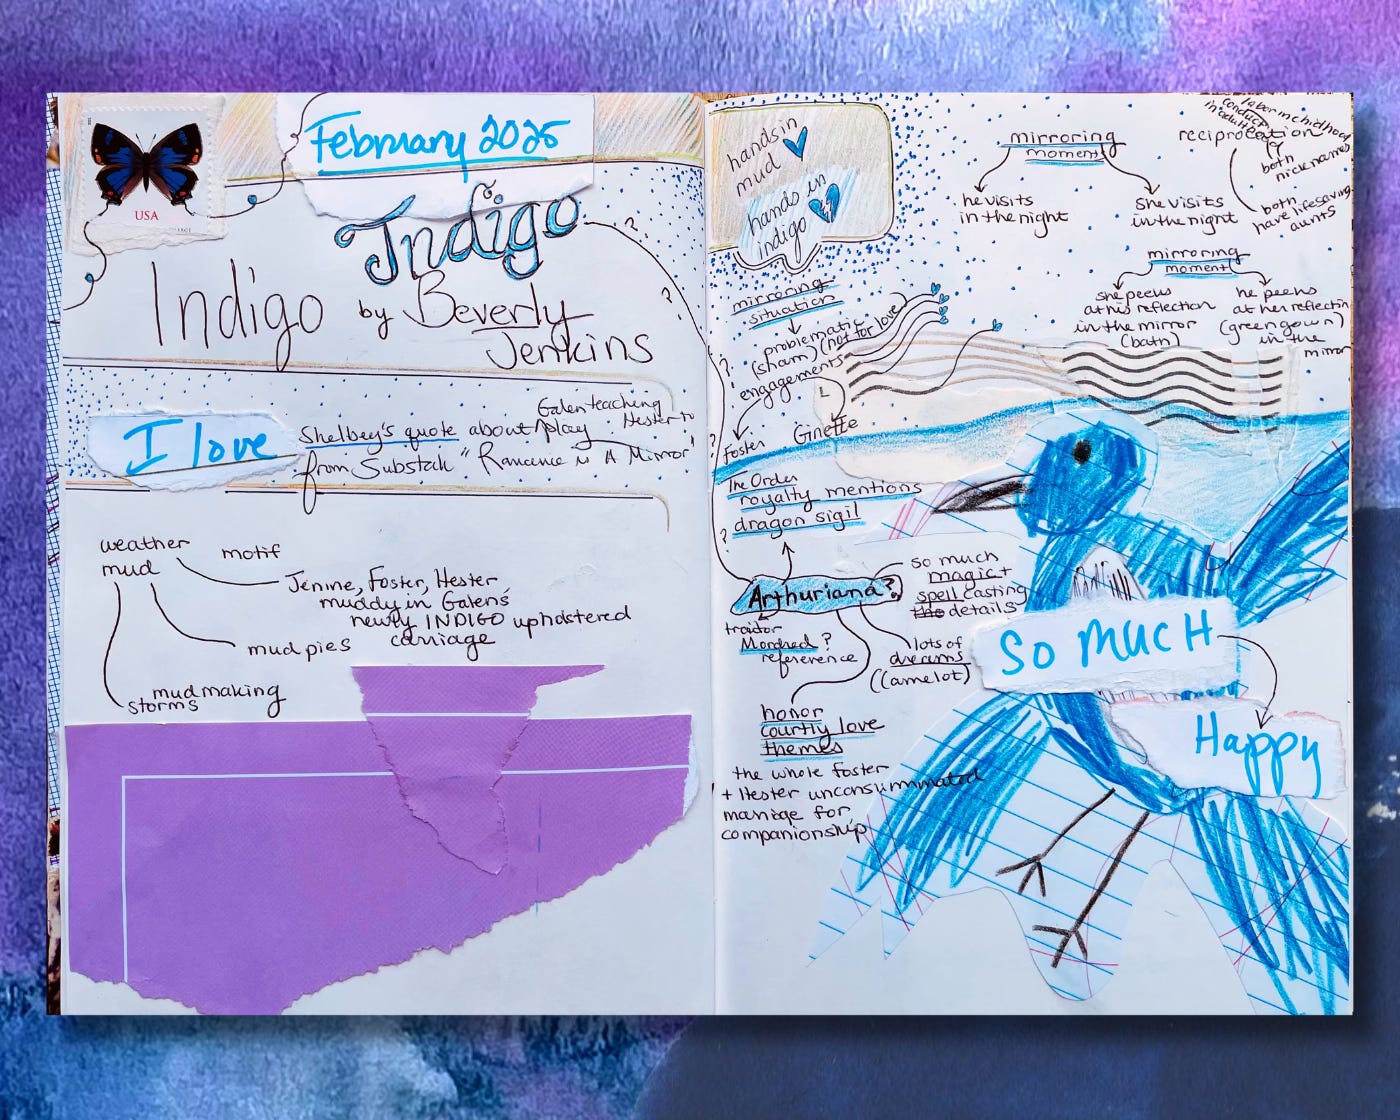 February 2025
USA
Indigo
Indigo by Beverly
Jenkins
I love
Shelbey's quote about play
Galen teaching
Hester to
from Substack "Romance is A Mirror"
weather
mud
motif
Jenine, Foster, Hester
muddy in Galen's
newly INDIGO upholstered
carriage
mud pies
mud making
storms
hands in
mud
hands in
indigo
mirroring
moment
he visits
in the night
she visits
in the night
labor in childhood
reciprocation
both
nicknames
both
have lifesaving
aunts
mirroring
moment
she peeks
at his reflection
in the mirror
(bath)
he peeks
at her reflection
(green gown)
in the
mirror
mirroring
situation
problematic
(sham) (not for love)
engagements
Foster
Ginette
The Order
royalty mentions
dragon sigil
Arthuriana?
so much
magic +
spell casting
the details
traitor
Mordred?
reference
lots of
dreams
(Camelot)
honor
courtly love
themes
the whole Foster
+ Hester unconsummated
marriage for
companionship
So MUCH
Happy